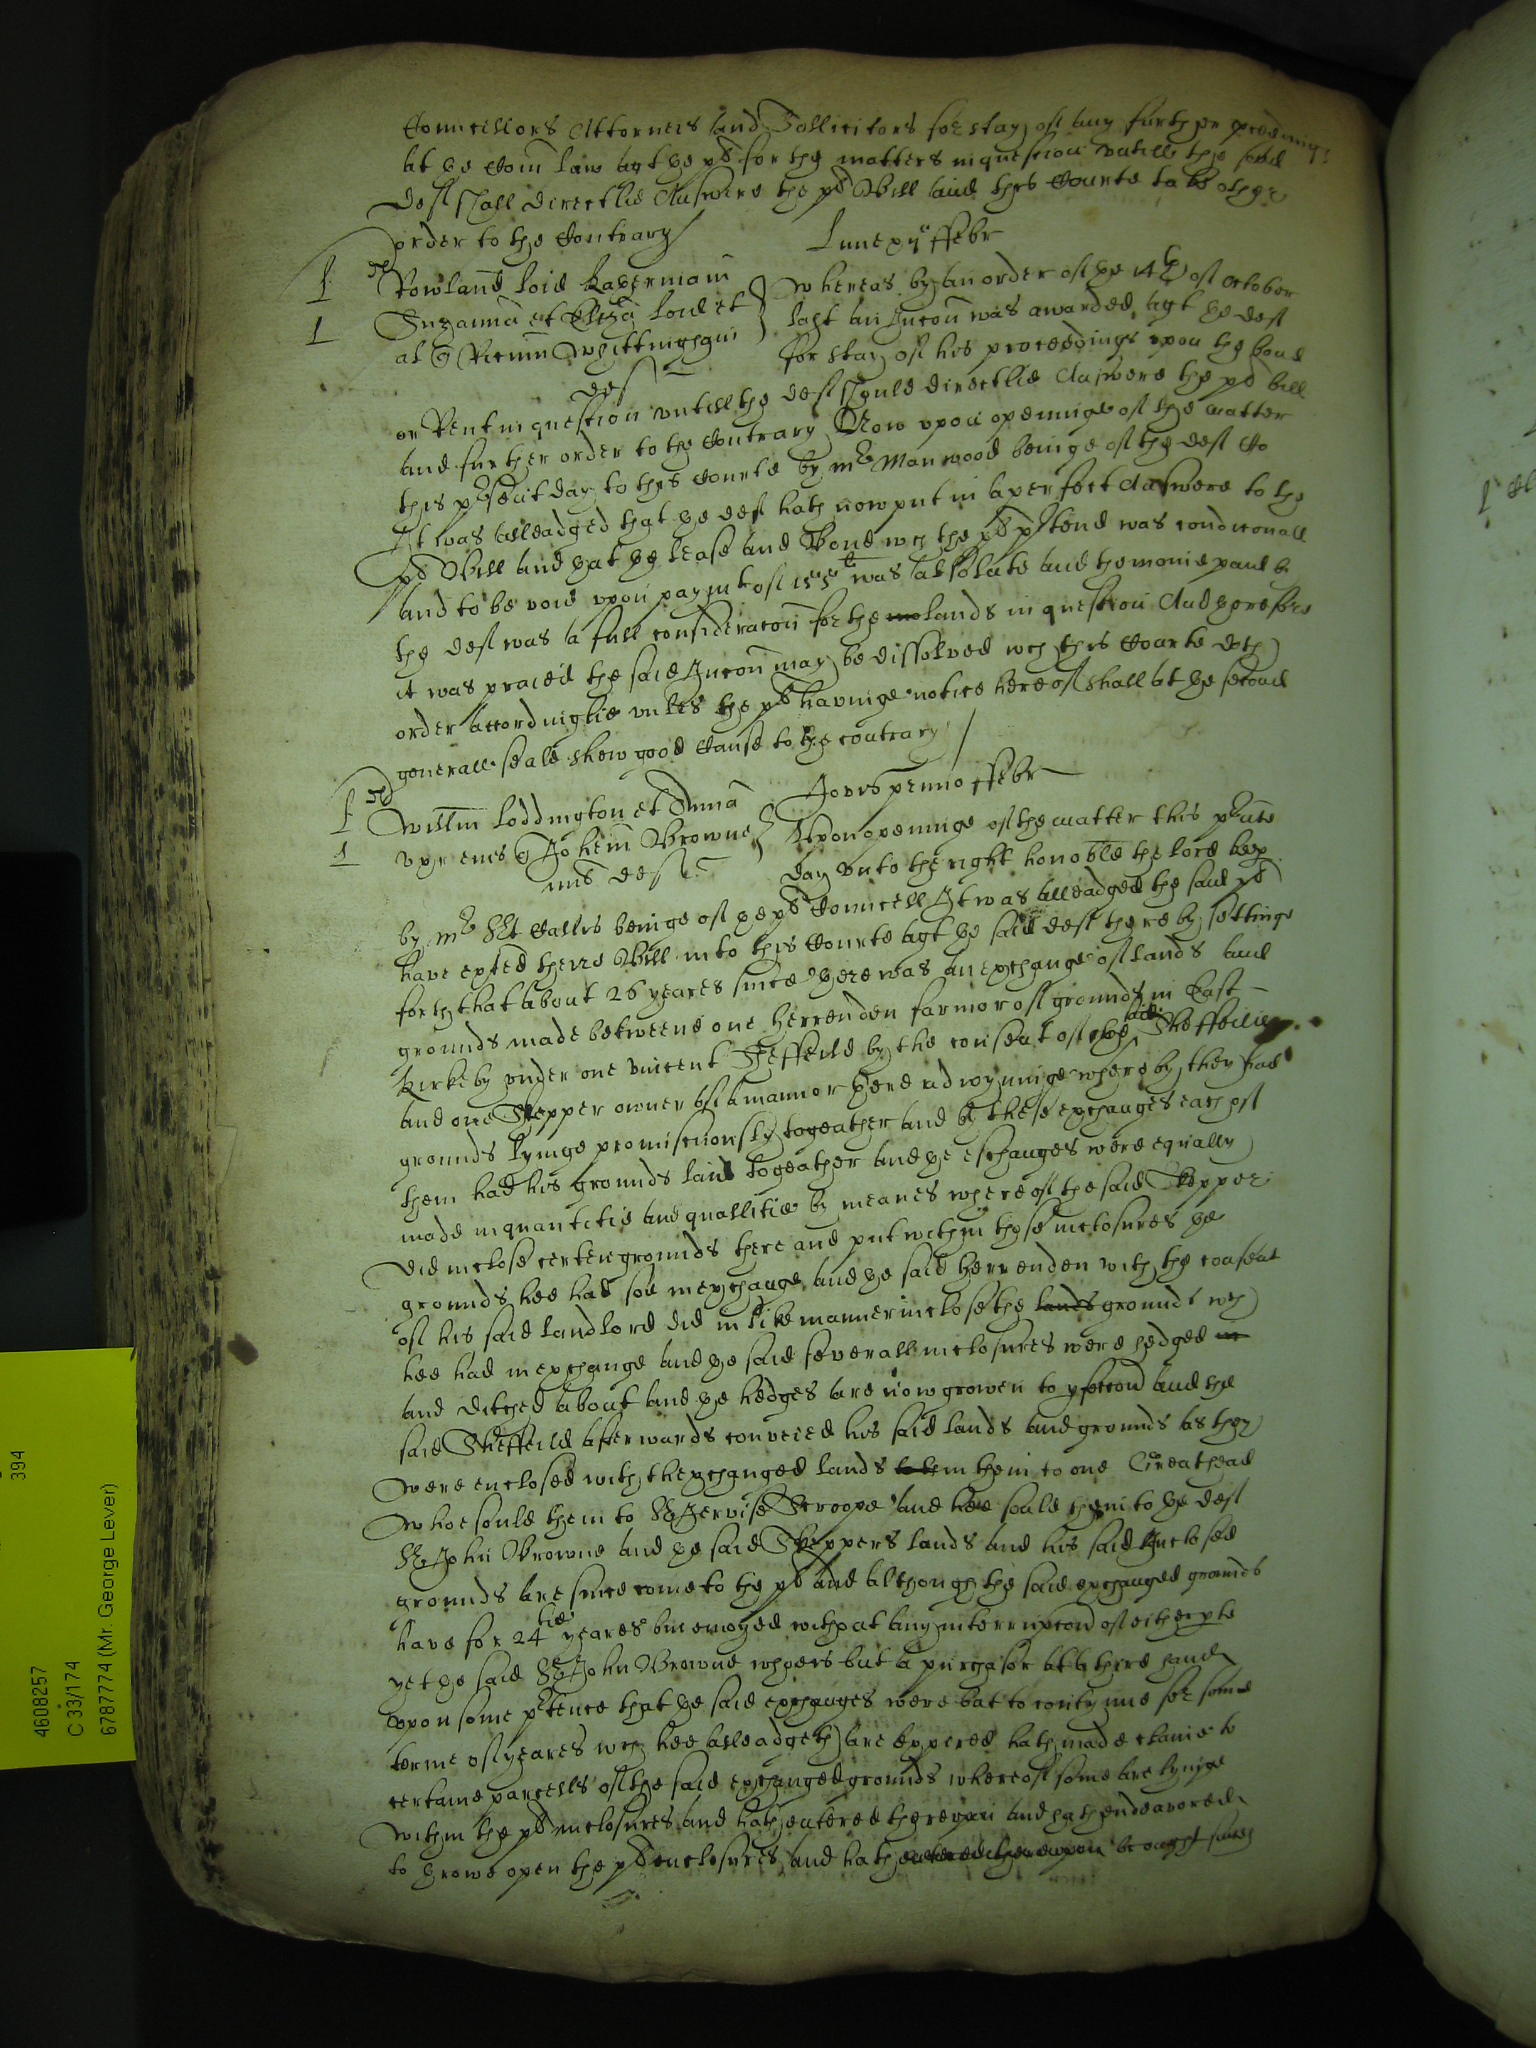 Councellors Attorneis and Sollicitors for stay of any further proceedings
at ye Com̃ law agt ye pl for the matters in question untill the said
Deft shall directlie Answere the pl Bill and this Courte take other
order to the Contrary
Lune xijo ffebr
Rowland
Suzanna et Eliza
al Whittingham
def
Whereas by an order of ye 14th of October
last an Iniuncc̃on was awarded agt ye deft
for stay of his proceedings upon the bond
or Rent in question untill the deft should directlie Answere the pl bill
and further order to the Contrary Now upon openninge of the matter
this p̃sent day to this Courte by mr Manwood beinge of the deft Co
It was alleadged that ye deft hath now put in a perfect Answere to the
pl Bill and yat ye lease and Bond wch the pl p̃tend was condic̃onall
and to be void upon paymt of was absolute and the monie paid by
the deft was a full considerac̃on for the lands in question And therefore
it was praied the said Iniuncc̃on may be dissolved wch this Courte doth
order accordinglie unles the pl havinge notice hereof shall at ye second
generall seale shew good Cause to the contrary
Jovis primo ffebr
Willm̃ Loddington et Anna
uxor eius Johem̃ Browne
mil def
Upon openinge of the matter this p̃nte
day unto the right honoble the lord keep
by mr Sgt Callis beinge of ye pl Councell It was alleadged the said pl
have exhted theire Bill into this Courte agt ye said deft thereby settinge
forth that about 26 yeares since there was an exchange of lands and
grounds made betweene one Herrenden farmor of grounds in East
Kirkeby under one Vincent Sheffeild by the consent of the said Sheffeild
and one Skepper owner of a mannor there adioyninge whereby they had
grounds lyinge promiscuously togeather and by these exchanges each of
them had his grounds laid togeather and ye exchanges were equally
made in quantitie and quallitie by meanes whereof the said Skepper
did inclose certen grounds there and put within those inclosures ye
grounds hee had soe in exchange and ye said Herrenden with the consent
of his said landlord did in like manner inclose the lands grounds wch
hee had in exchange and ye said severall inclosures were hedged
and ditched about and ye hedges are now growen to p̃fecc̃on and the
said Sheffeild afterwards conveied his said lands and grounds as they
were enclosed with the exchanged lands in them to one Greathead
whoe sould them to Sr Jervise Scroope and hee sould them to ye deft
Sr John Browne and ye said Skeppers lands and his said Inclosed
grounds are since come to the pl and although the said exchanged grounds
have for 24tie yeares bin enioyed without any interrupc̃on of either pte
yet ye said Sr John Browne whoe is but a purchasor at a third hand
upon some p̃tence that ye said exchanges were but to contynue for some
terme of yeares wch hee alleadgeth are expired hath made claime to
certaine parcells of the said exchanged grounds whereof some are lyinge
within the pl inclosures and hath entered thereupon and hath endeavored
to throwe open the pl enclosures and hath entered thereupon brought
4608257
C 33/174
6787774 (Mr. George Lever)
394